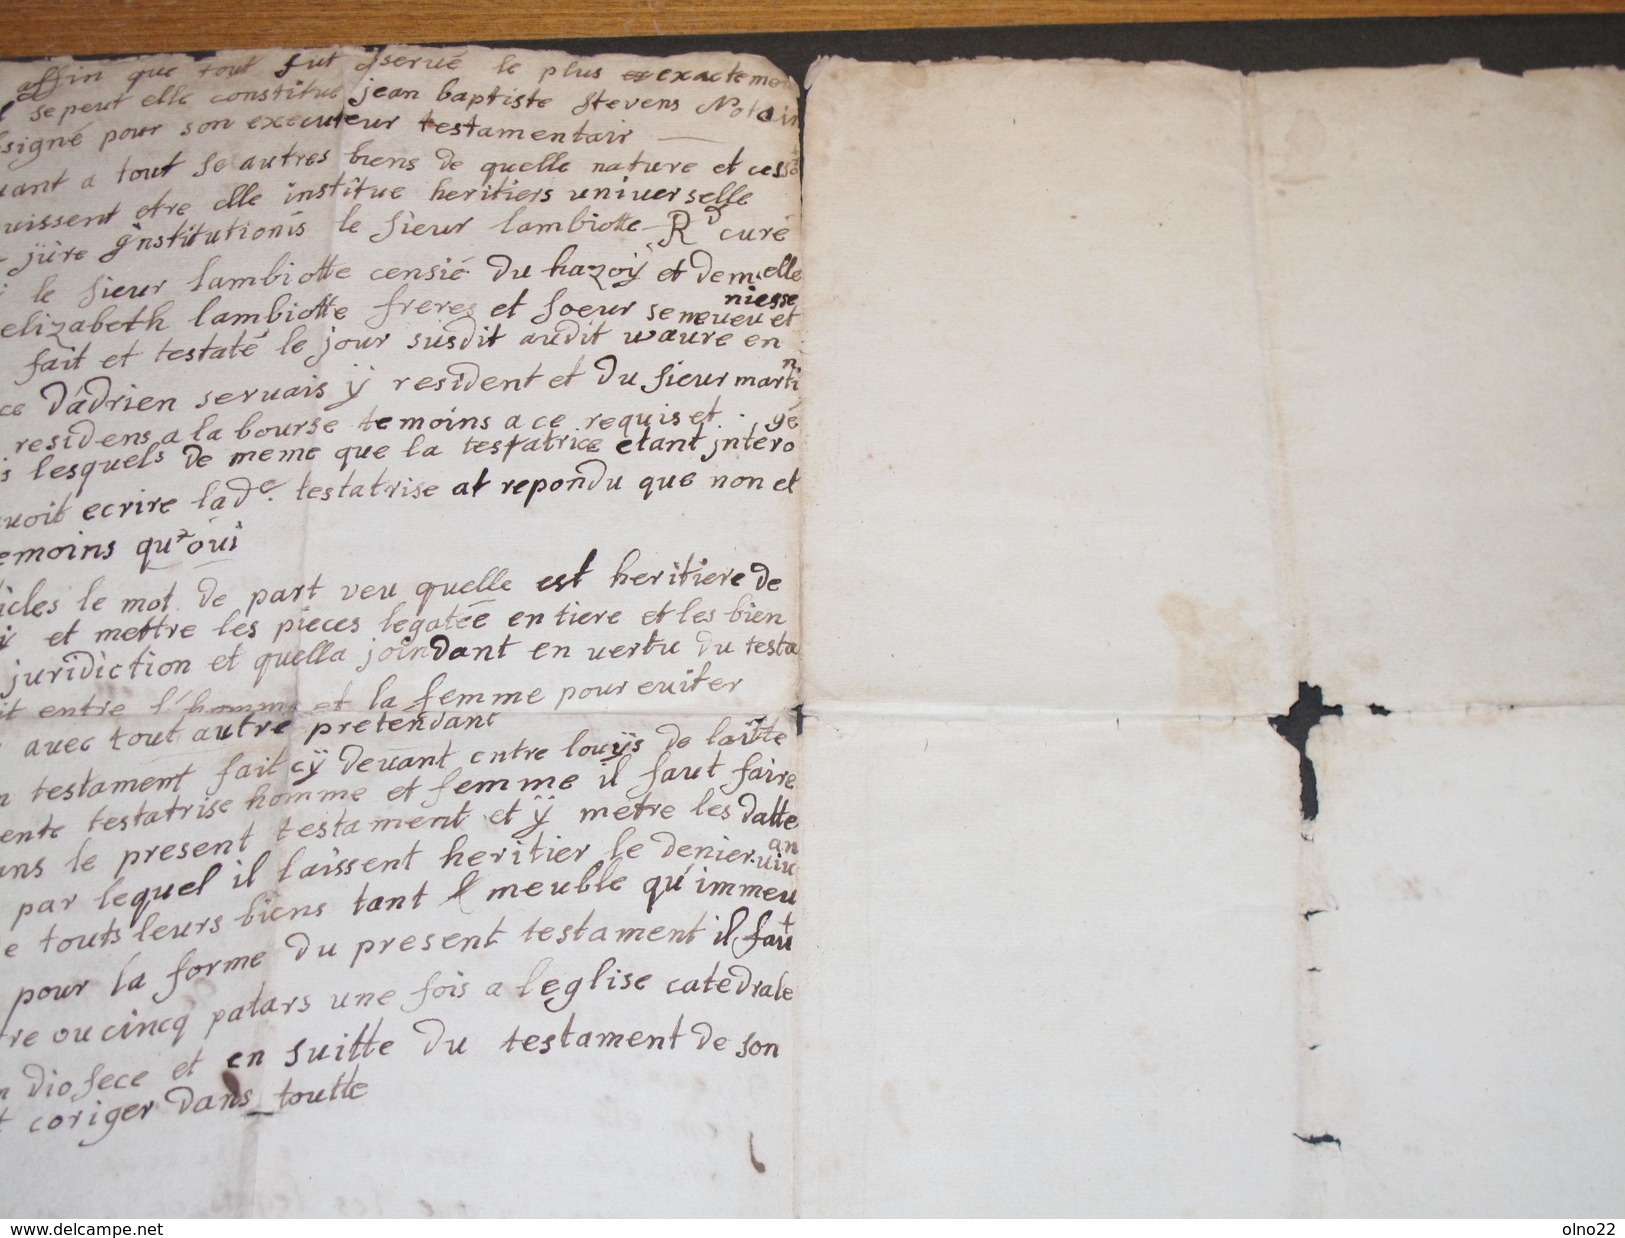 affin que tout fut observé le plus exactement
se peut elle constitue jean baptiste stevens Notair
signé pour son executeur testamentair
uant a tout se autres biens de quelle nature et cess
uissent etre elle institue heritiers universelle
jüre jnstitutionis le sieur lambiotte R^d curé
le sieur lambiotte censié du hazoÿ et demelle
elizabeth lambiotte freres et soeur se neveu et niesse
fait et testaté le jour susdit audit waure en
ce d'adrien servais ÿ resident et du sieur martin
residens a la bourse temoins a ce requis et
s lesquels de meme que la testatrice etant jnterogé
uoit ecrire lad^e. testatrise at repondu que non et
emoins qu'oüi
icles le mot de part veu quelle est heritiere de
ÿ et mettre les pieces legatée entiere et les bien
juridiction et quella joindant en vertu du testa
it entre l'homme et la femme pour eviter
avec tout autre pretendant
n testament fait cÿ devant entre louÿs de laitte
ente testatrise homme et femme il faut faire
ans le present testament et ÿ metre les datte
par lequel il laissent heritier le denier vivan
e touts leurs biens tant meuble qu'immeu
pour la forme du present testament il faut
tre ou cincq patars une fois a leglise catedrale
n diosece et en suitte du testament de son
t coriger dans toutte
www.delcampe.net
olno22